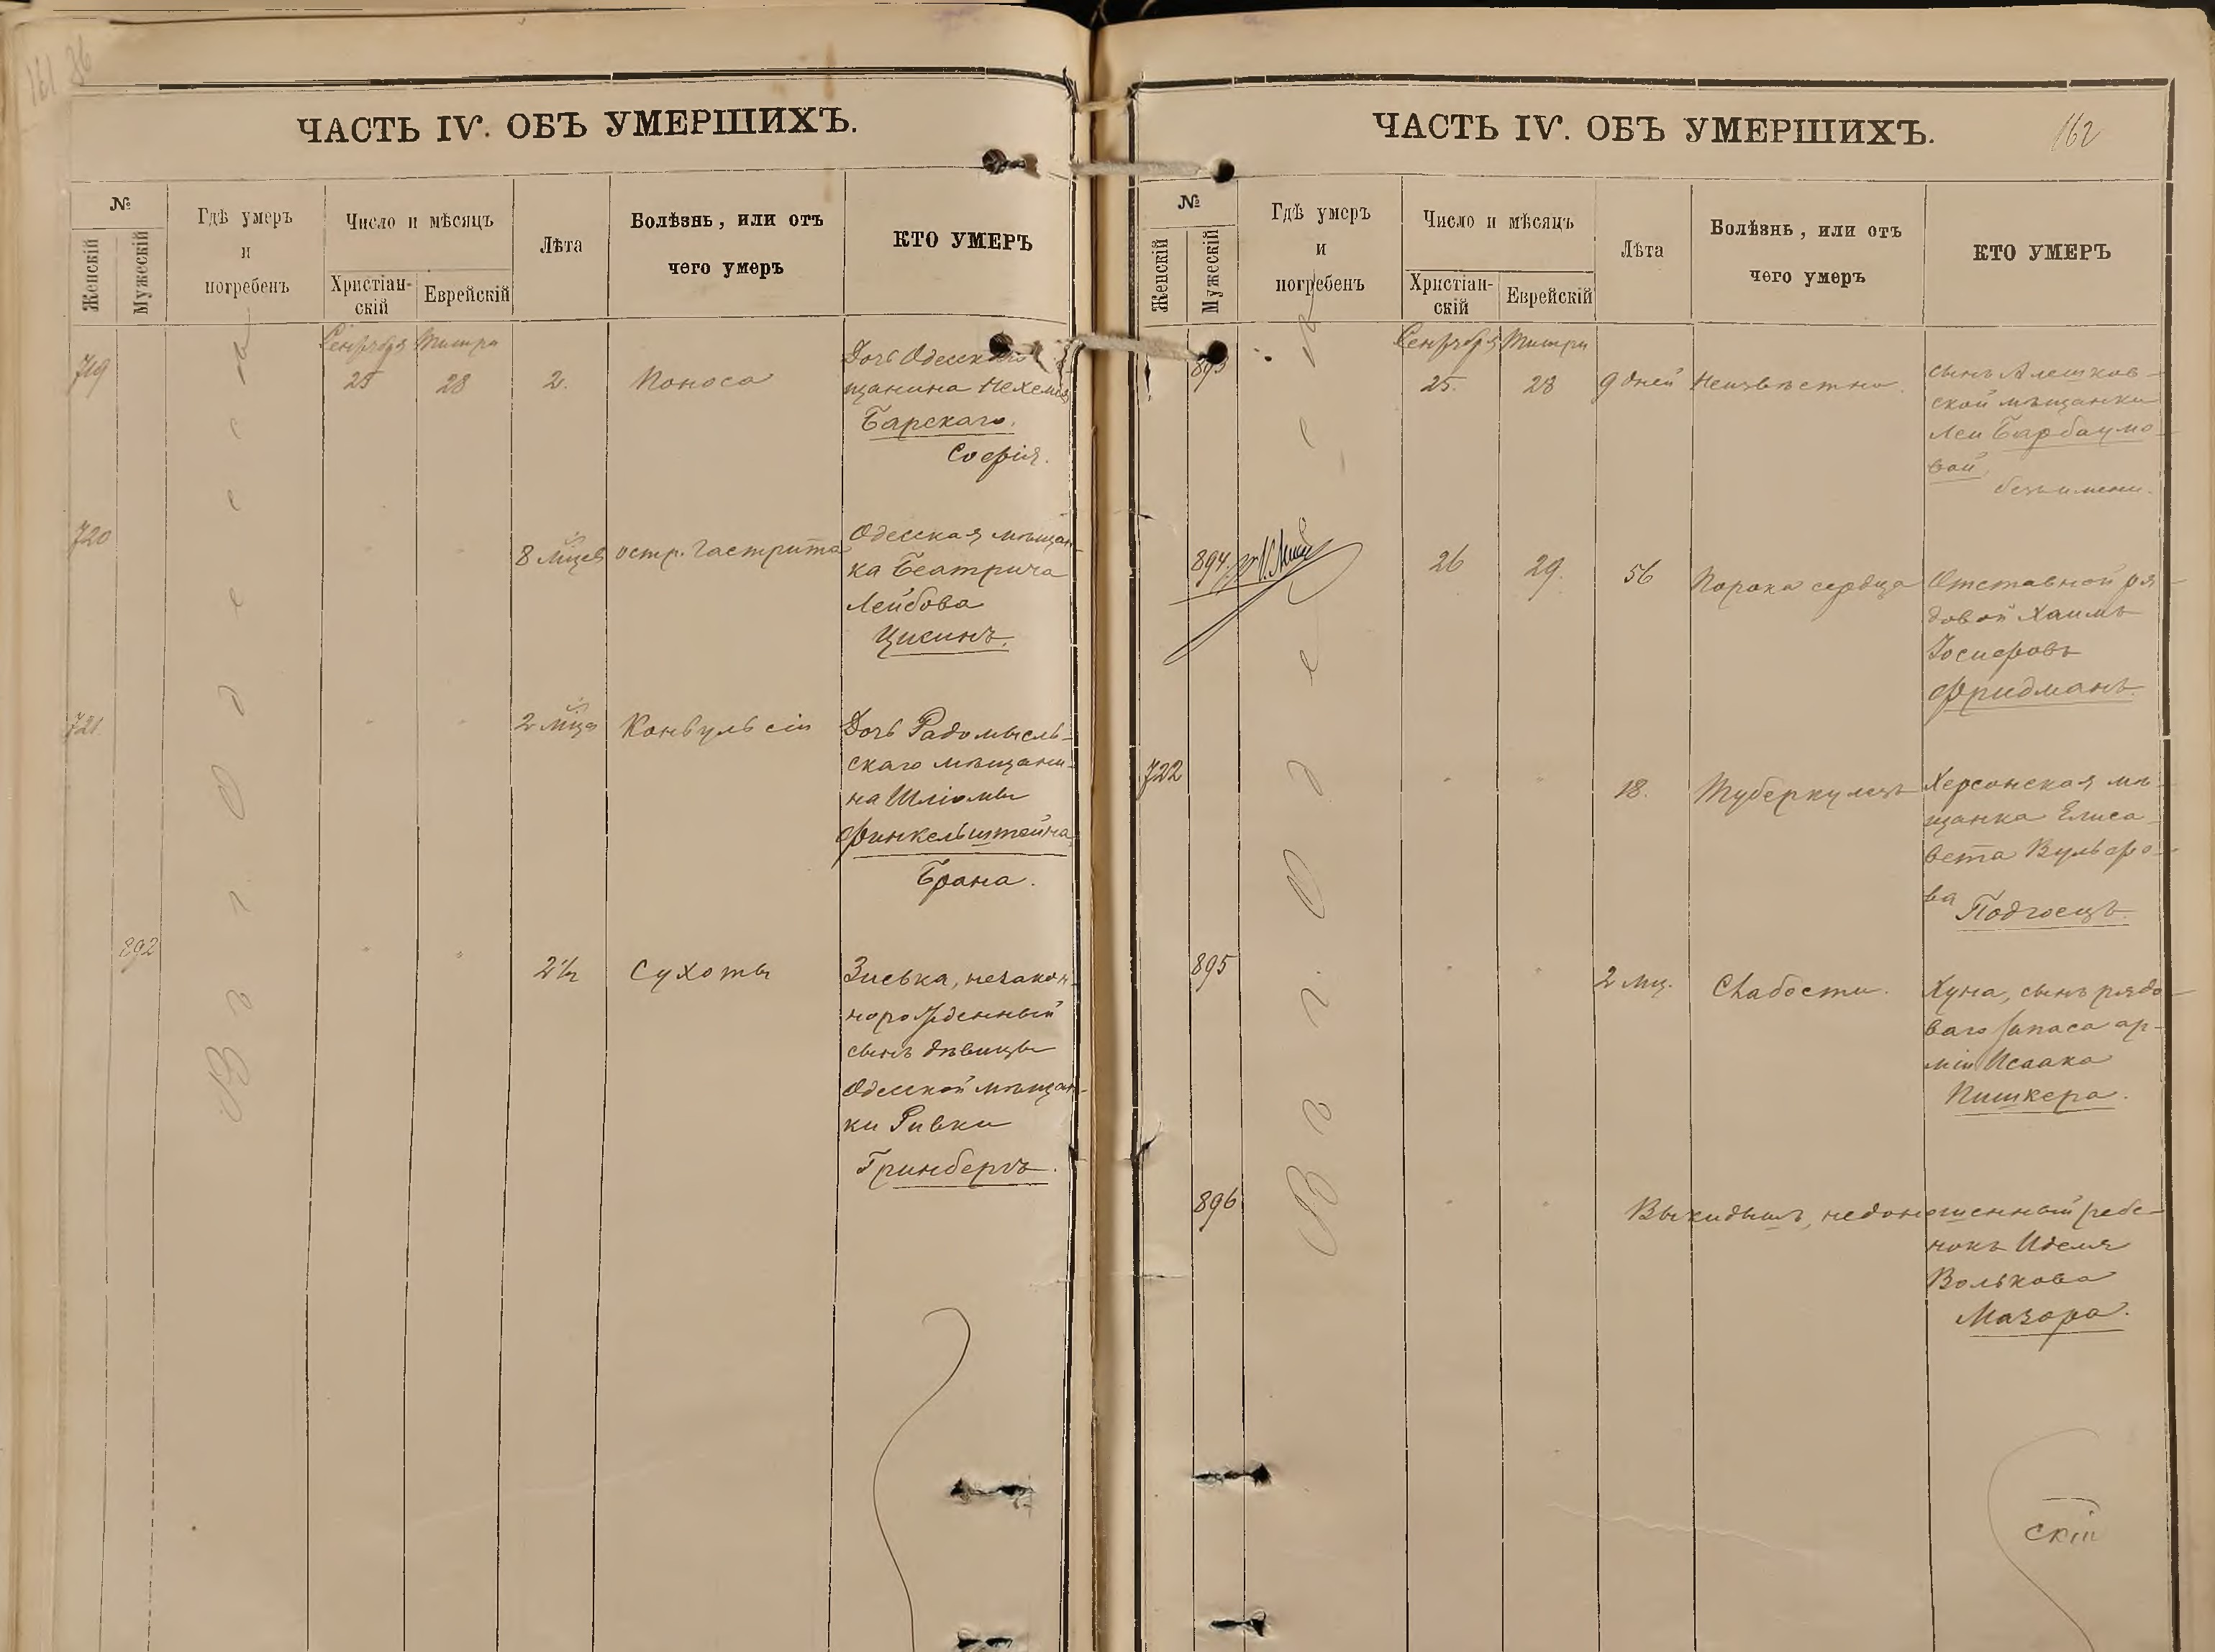 161 36
ЧАСТЬ IV. ОБЪ УМЕРШИХЪ.
№
Женскій
Мужескій
Гдѣ умеръ
и
погребенъ
Число и мѣсяцъ
Христіан-
скій
Еврейскій
Лѣта
Болѣзнь, или отъ
чего умеръ
КТО УМЕРЪ
Сентября Тишри
719 25 28 2. Поноса
Дочь Одесскаго
щанина Нехемія
Барскаго.
Софія.
720 " " 8 м̃цевъ остр. гастрита
Одесская мѣщан-
ка Беатриса
Лейбова
Цисинъ.
721. " " 2 м̃ца Конвульсіи
Дочь Радомысль-
скаго мѣщани-
на Шліомы
Финкельштейна
Брана.
892 " " 2½ Сухоты
Зиська, незакон-
норожденный
сынъ дѣвицы
Одесской мѣщан-
ки Ривки
Гринбергъ.
Въ г. Одессѣ
ЧАСТЬ IV. ОБЪ УМЕРШИХЪ.
162
№
Женскій
Мужескій
Гдѣ умеръ
и
погребенъ
Число и мѣсяцъ
Христіан-
скій
Еврейскій
Лѣта
Болѣзнь, или отъ
чего умеръ
КТО УМЕРЪ
Сентября Тишри
893 25. 28 9 дней Неизвѣстно.
сынъ Алешков-
ской мѣщанки
Леи Барбаумо-
вой,
безъ имени.
894. 26 29. 56 Порока сердца
Отставной ря-
довой Хаимъ
Іосифовъ
Фридманъ.
722 " " 18. Туберкулезъ
Херсонская мѣ-
щанка Елиса-
вета Вульфо-
ва Подгоецъ.
895 " " 2 мц. Слабости.
Хуна, сынъ рядо-
ваго запаса ар-
міи Исаака
Пишкера.
896 " " Выкидышъ, недоношенный ребе-
нокъ Иделя
Волькова
Мазора.
Въ г. Одессѣ
скій